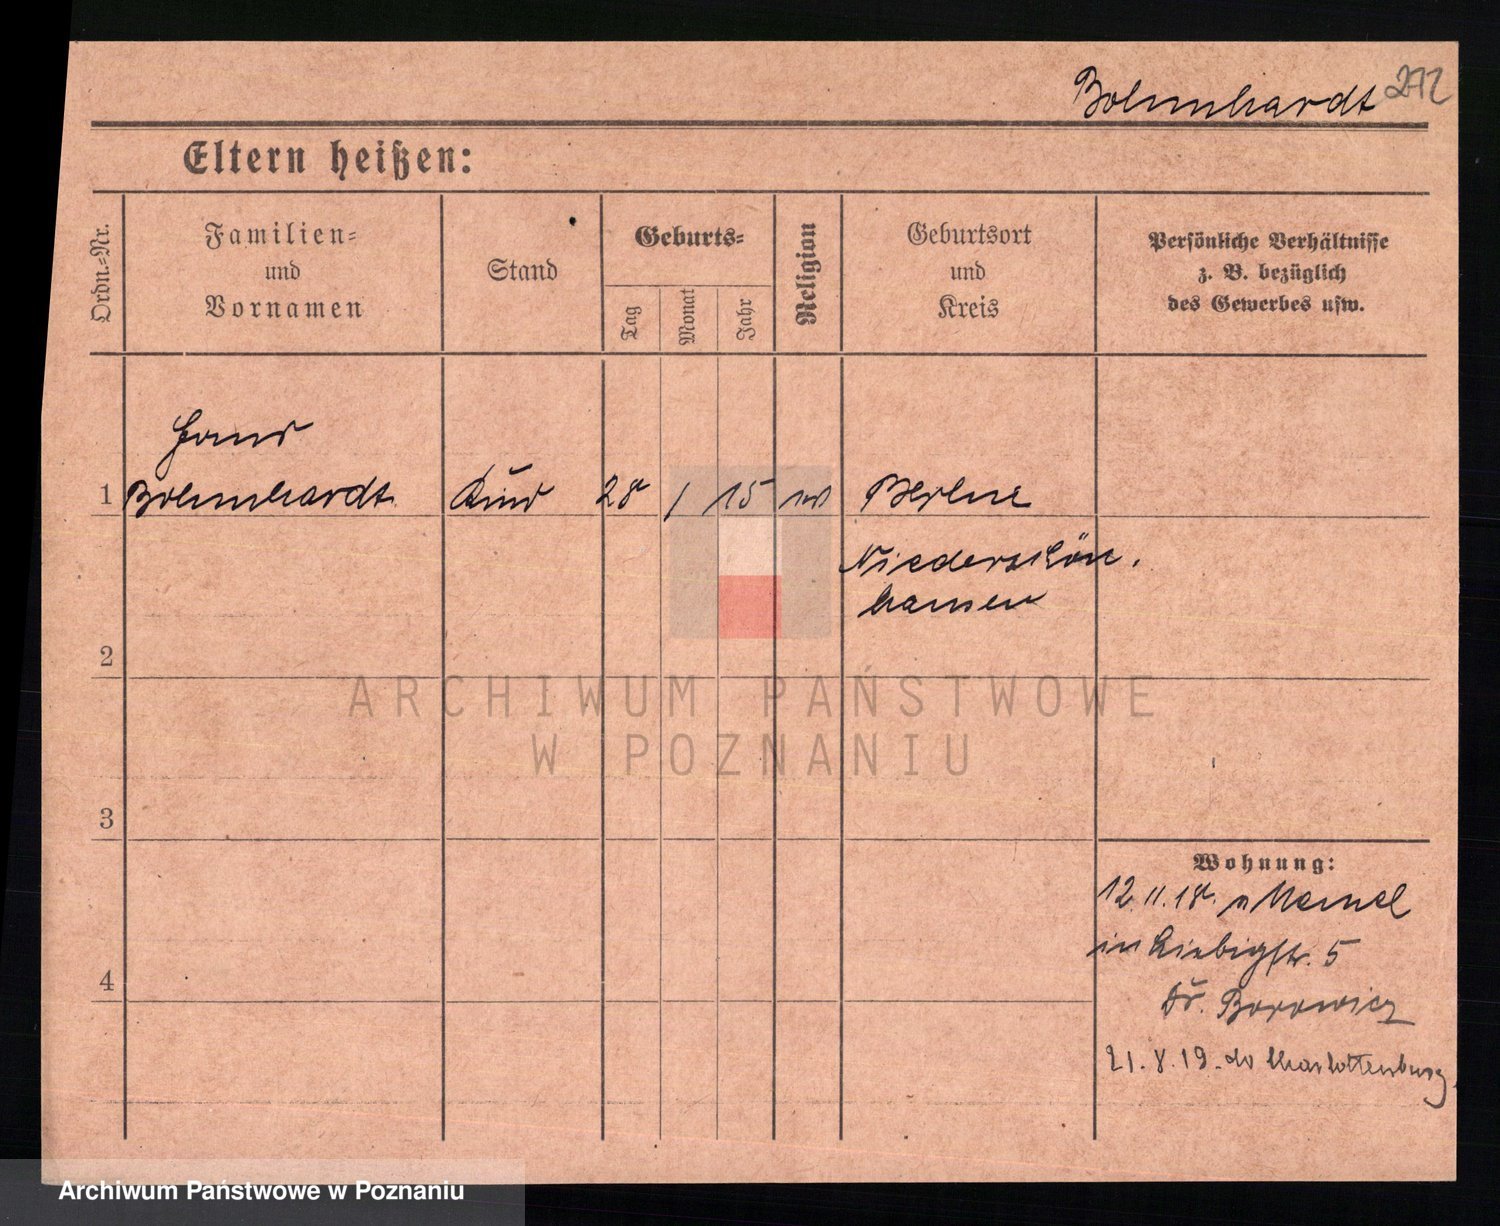 Bohmhardt 212
Eltern heißen:
Ordn.-Nr.
Familien-
und
Vornamen
Stand
Geburts-
Tag
Monat
Jahr
Religion
Geburtsort
und
Kreis
Persönliche Verhältnisse
z. B. bezüglich
des Gewerbes usw.
1
Bohmhardt Kind 28 1 15
Niederschön.
hausen
2
ARCHIWUM PAŃSTWOWE
W POZNANIU
3
Wohnung:
12.11.18.
in Liebigstr. 5
Dr. Borowicz
4
21.8.19. do Charlottenburg.
Archiwum Państwowe w Poznaniu